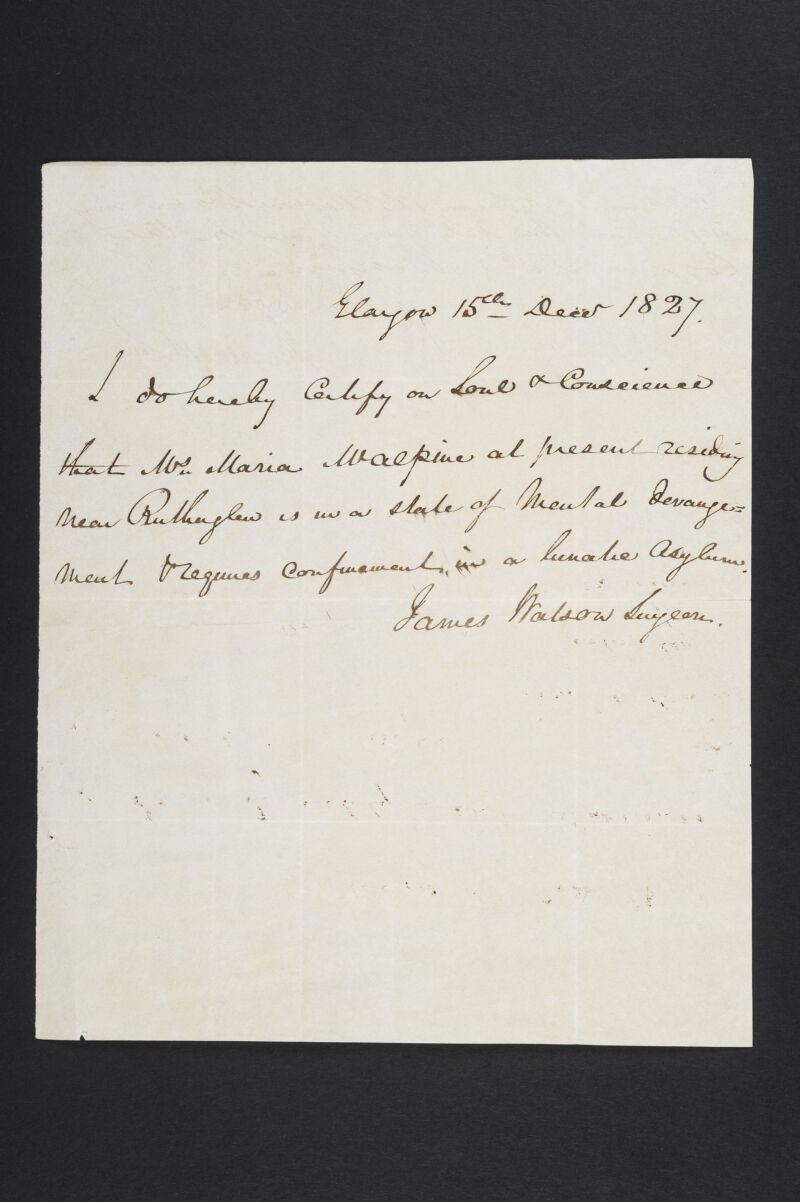 Glasgow 15th Decr 1827.
I do hereby Certify on Soul & Conscience
that Mrs Maria McAlpine at present residing
near Rutherglen is in a state of Mental derange=
ment & requires confinement in a lunatic Asylum.
James Watson Surgeon.